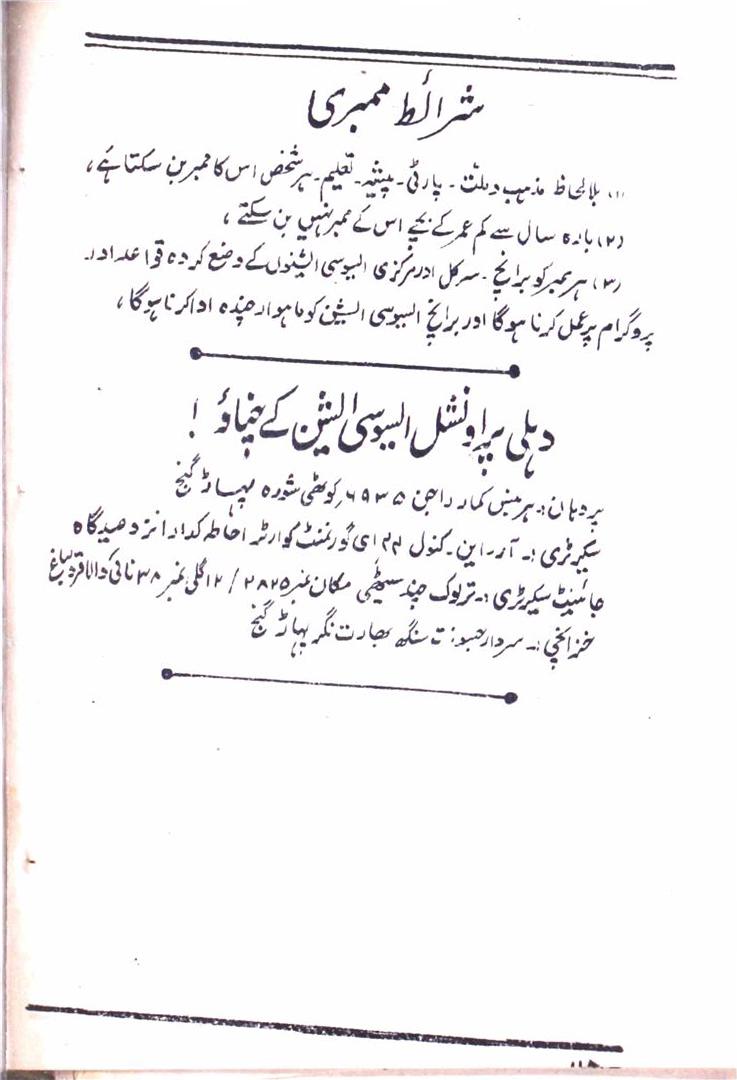 شرائط ممبری
(۱) بلالحاظ مذہب و ملت ۔ پارٹی ۔ پیشہ ۔ تعلیم ۔ ہر شخص اس کا ممبر بن سکتا ہے ،
(۲) بارہ سال سے کم عمر کے بچے اس کے ممبر نہیں بن سکتے ،
(۳) ہر ممبر کو برانچ ۔ سرکل اور مرکزی ایسوسی ایشنوں کے وضع کردہ قواعد اور
پروگرام پر عمل کرنا ہوگا اور برانچ ایسوسی ایشن کو ماہوار چندہ ادا کرنا ہوگا ،
دہلی پراونشل ایسوسی ایشن کے چناؤ !
پردہان :۔ ہربنس کمار راجن ۶۹۳۵ کوٹھی شورہ پہاڑ گنج
سیکریٹری :۔ آر ۔ این ۔ کنول ۲۲ ای گورنمنٹ کوارٹر احاطہ کدارا نزد عیدگاہ
جائنٹ سیکریٹری :۔ تریلوک چند سیٹھی مکان نمبر ۲۸۲۵ / ۱۲ گلی نمبر ۳۸ نائی والا قرولباغ
خزانچی :۔ سردار جسونت سنگھ بھارت نگر پہاڑ گنج